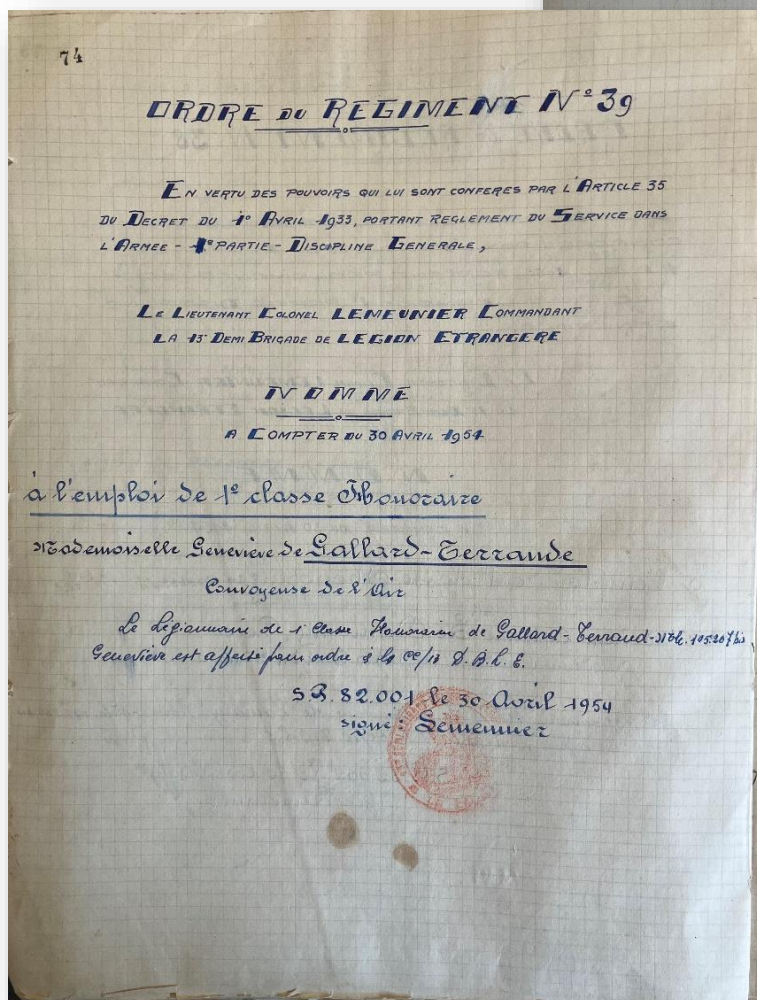 74
ORDRE DU REGIMENT N° 39
EN VERTU DES POUVOIRS QUI LUI SONT CONFERES PAR L'ARTICLE 35
DU DECRET DU 1° AVRIL 1933, PORTANT REGLEMENT DU SERVICE DANS
L'ARMEE - 1° PARTIE - DISCIPLINE GENERALE,
LE LIEUTENANT COLONEL LEMEUNIER COMMANDANT
LA 13° DEMI BRIGADE DE LEGION ETRANGERE
NOMME
A COMPTER DU 30 AVRIL 1954
à l'emploi de 1° classe Honoraire
Mademoiselle Geneviève de Gallard-Terraude
Convoyeuse de l'Air
Le Légionnaire de 1° Classe Honoraire de Gallard-Terraud - Mle. 105.207 bis
Geneviève est affecté pour ordre à la CC/13 D.B.L.E.
S.P. 82.001 le 30 Avril 1954
signé : Lemeunier